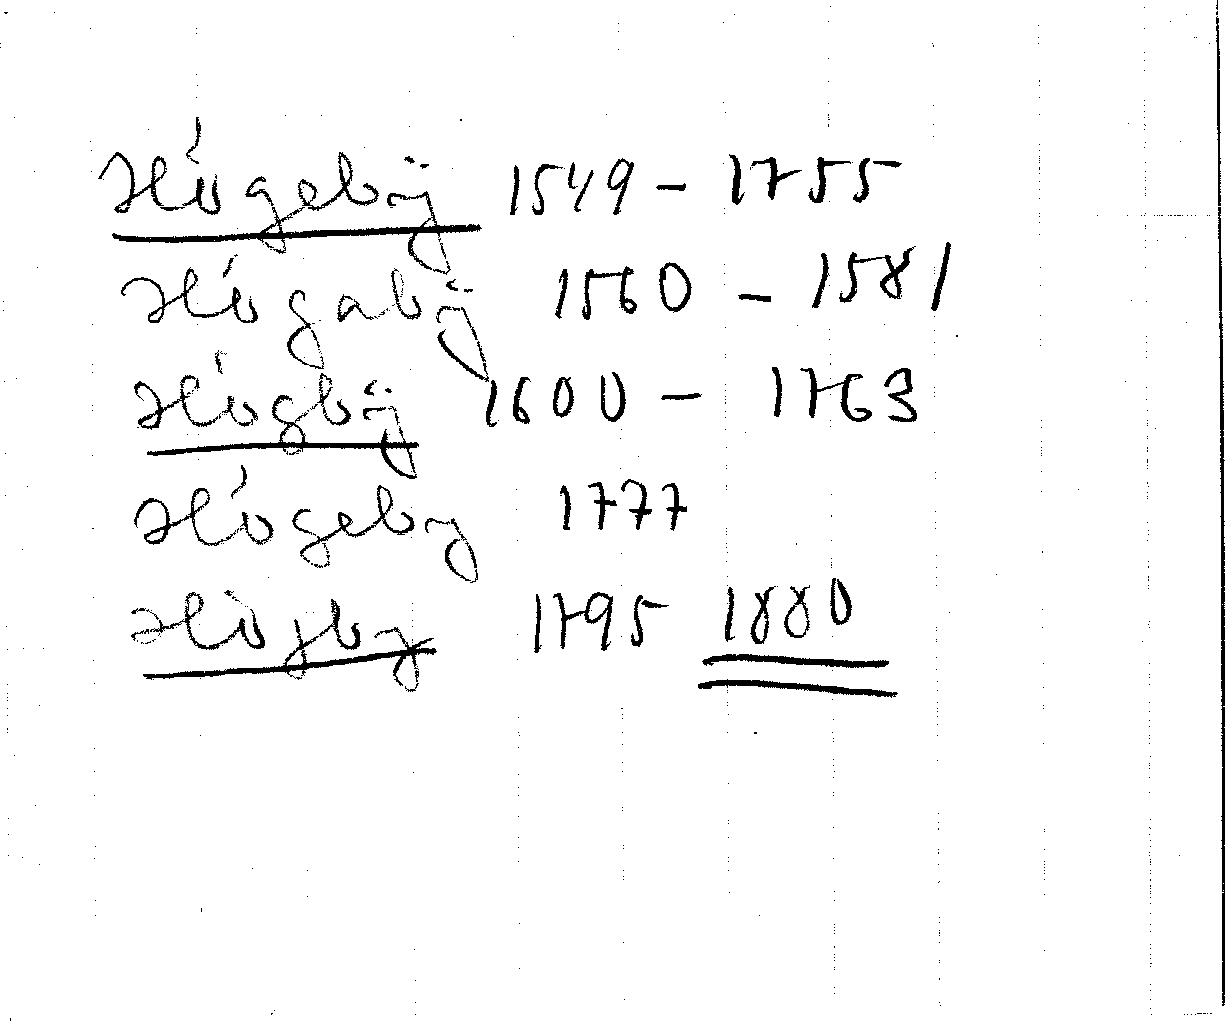 Högebÿ 1549 - 1755
Högabÿ 1560 - 1581
Högbÿ 1600 - 1763
Högeby 1777
Högby 1795 1880